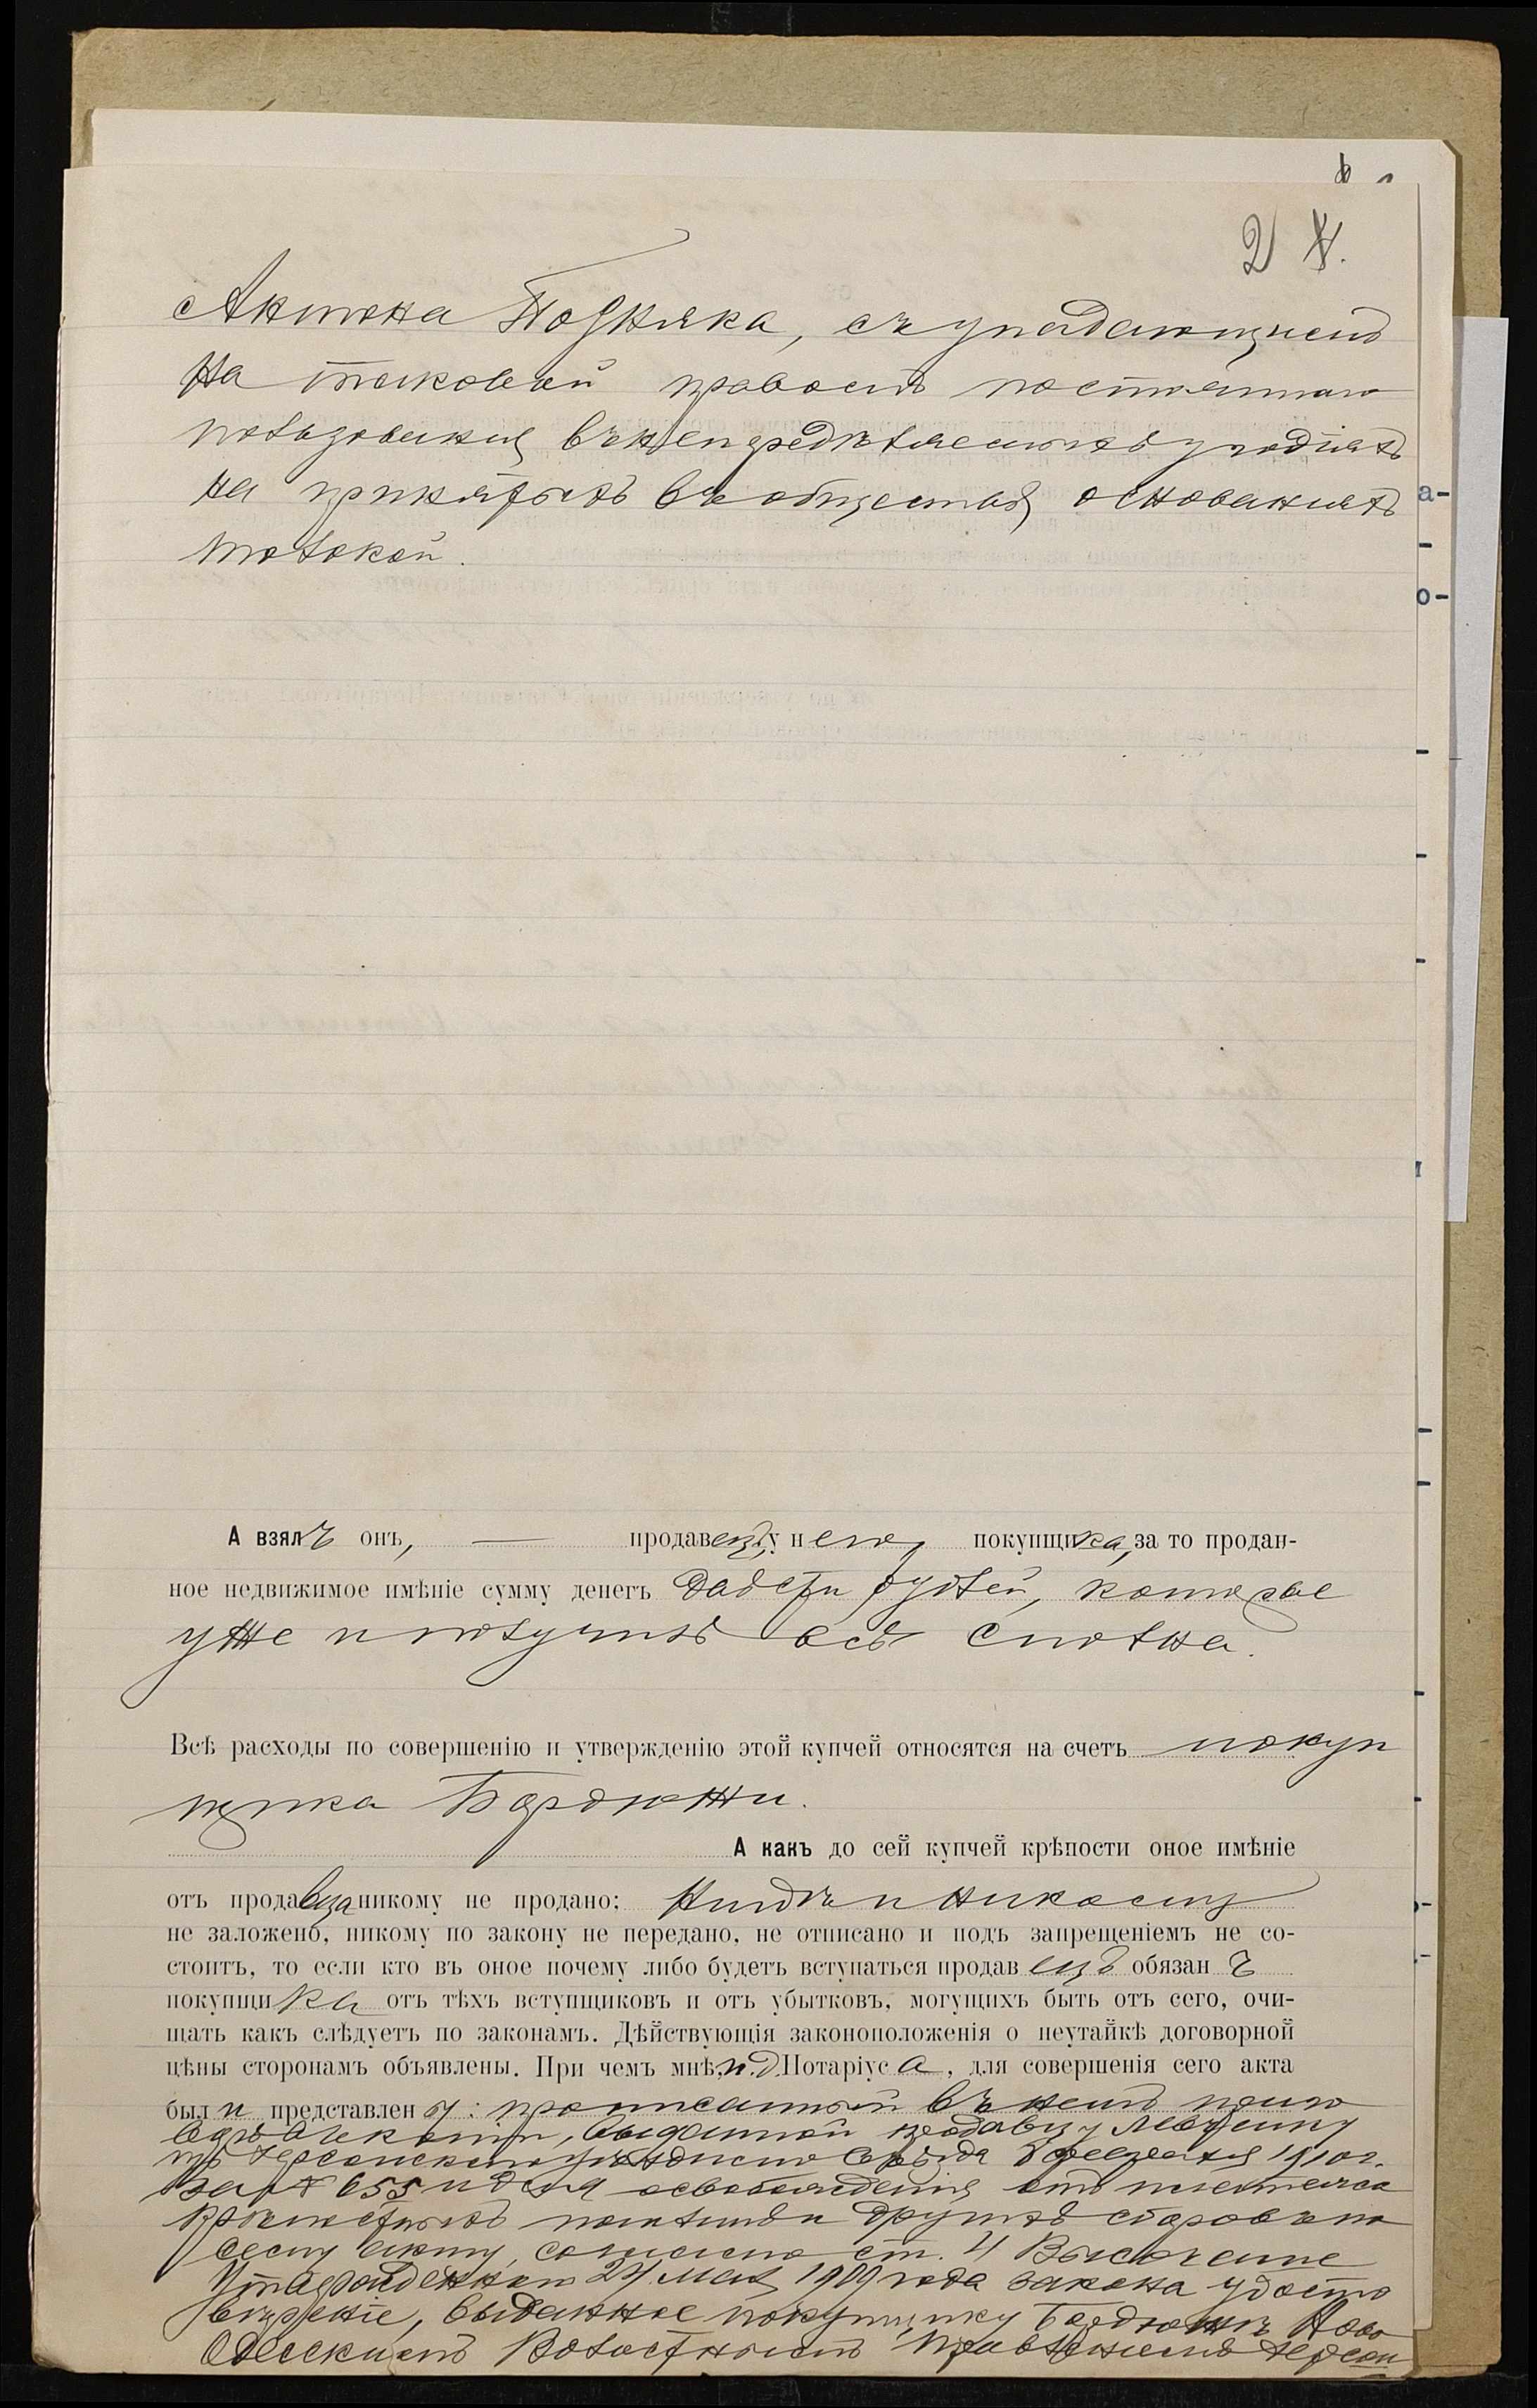 2
Антона Подняка, съ упадающимъ
на таковой правомъ постояннаго
пользованія въ непредѣленныхъ угодіяхъ
на принятыхъ въ обществѣ основаніяхъ
толокой.
А взялъ онъ, — продавецъ, у него, покупщика, за то продан-
ное недвижимое имѣніе сумму денегъ двѣсти рублей, которые
уже и получилъ всѣ сполна.
Всѣ расходы по совершенію и утвержденію этой купчей относятся на счетъ покуп
щика Бардюжи.
А какъ до сей купчей крѣпости оное имѣніе
отъ продавца никому не продано;
не заложено, никому по закону не передано, не отписано и подъ запрещеніемъ не со-
стоитъ, то если кто въ оное почему либо будетъ вступаться продавецъ обязанъ
покупщика отъ тѣхъ вступщиковъ и отъ убытковъ, могущихъ быть отъ сего, очи-
щать какъ слѣдуетъ по законамъ. Дѣйствующія законоположенія о неутайкѣ договорной
цѣны сторонамъ объявлены. При чемъ мнѣ, и. д. Нотаріуса, для совершенія сего акта
были представлены: прописанный въ немъ
выданной продавцу
изъ Херсонскаго уѣзднаго съѣзда 8 февраля 1910 г.
за № 655 и для освобожденія отъ платежа
крѣпостныхъ пошлинъ и другихъ сборовъ по
сему акту, согласно ст. 4 Высочайше
утвержденнаго 24 мая 1909 года закона удосто
вѣреніе, выданное покупщику Бардюжѣ Ново
Одесскимъ Волостнымъ Правленіемъ Херсон